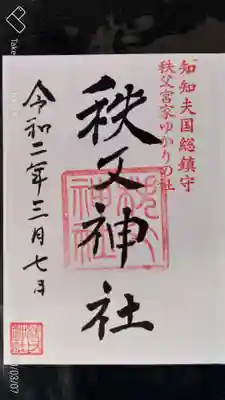 知知夫国総鎮守
秩父宮家ゆかりの社
秩父神社
令和二年三月七日
/03/07